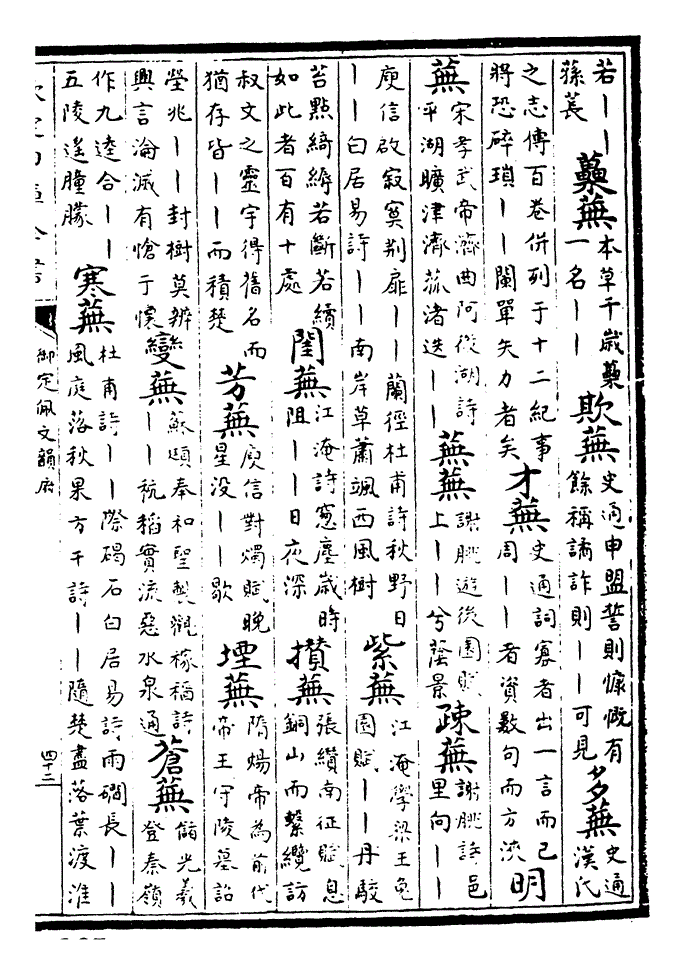 若丨丨蓀萇 蘽蕪 本草千歲蘽一名丨丨 欺蕪 史通申盟誓則慷慨有餘稱譎詐則丨丨可見 多蕪 史通漢氏
之志傳百卷併列于十二紀事將恐碎瑣丨丨闌單失力者矣 才蕪 史通詞寡者出一言而已周丨丨者資數句而方浹 明
蕪 宋孝武帝濟曲阿後湖詩平湖曠津濟菰渚迭丨丨 蕪蕪 謝朓遊後園賦上丨丨兮蔭景 疎蕪 謝朓詩邑里向丨丨
庾信啟寂寞荆扉丨丨蘭徑杜甫詩秋野日丨丨白居易詩丨丨南岸草蕭颯西風樹 紫蕪 江淹學梁王兔園賦丨丨丹駮
苔點綺縟若斷若續如此者百有十處 閨蕪 江淹詩窻塵歲時阻丨丨日夜深 攅蕪 張纘南征賦息銅山而繫纜訪
叔文之靈宇得舊名而猶存皆丨丨而積楚 芳蕪 庾信對燭賦晚星没丨丨歇 堙蕪 隋煬帝為前代帝王守陵墓詔
塋兆丨丨封樹莫辨興言淪滅有愴于懷 變蕪 蘇頲奉和聖製觀稼稻詩丨丨秔稻實流惡水泉通 蒼蕪 儲光羲登秦嶺
作九逵合丨丨五陵遥朣朦 寒蕪 杜甫詩丨丨際碣石白居易詩雨磵長丨丨風庭落秋果方干詩丨丨隨楚盡落葉渡淮
御定佩文韻府
四十三